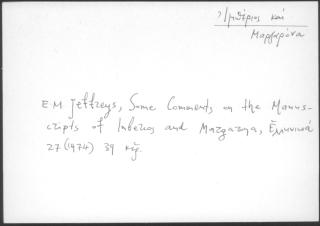 Ἰμπέριος καὶ
Μαργαρόνα
E M Jeffreys, Some Comments on the Manus-
cripts of Imberios and Margarona, Ἑλληνικά
27 (1974) 39 κἑ.